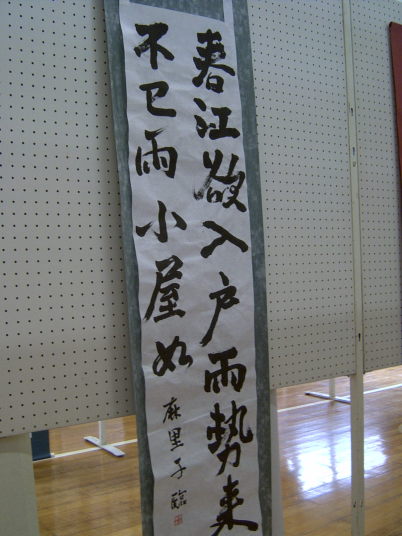 春江欲入戸雨勢来
不已雨小屋如
麻里子臨